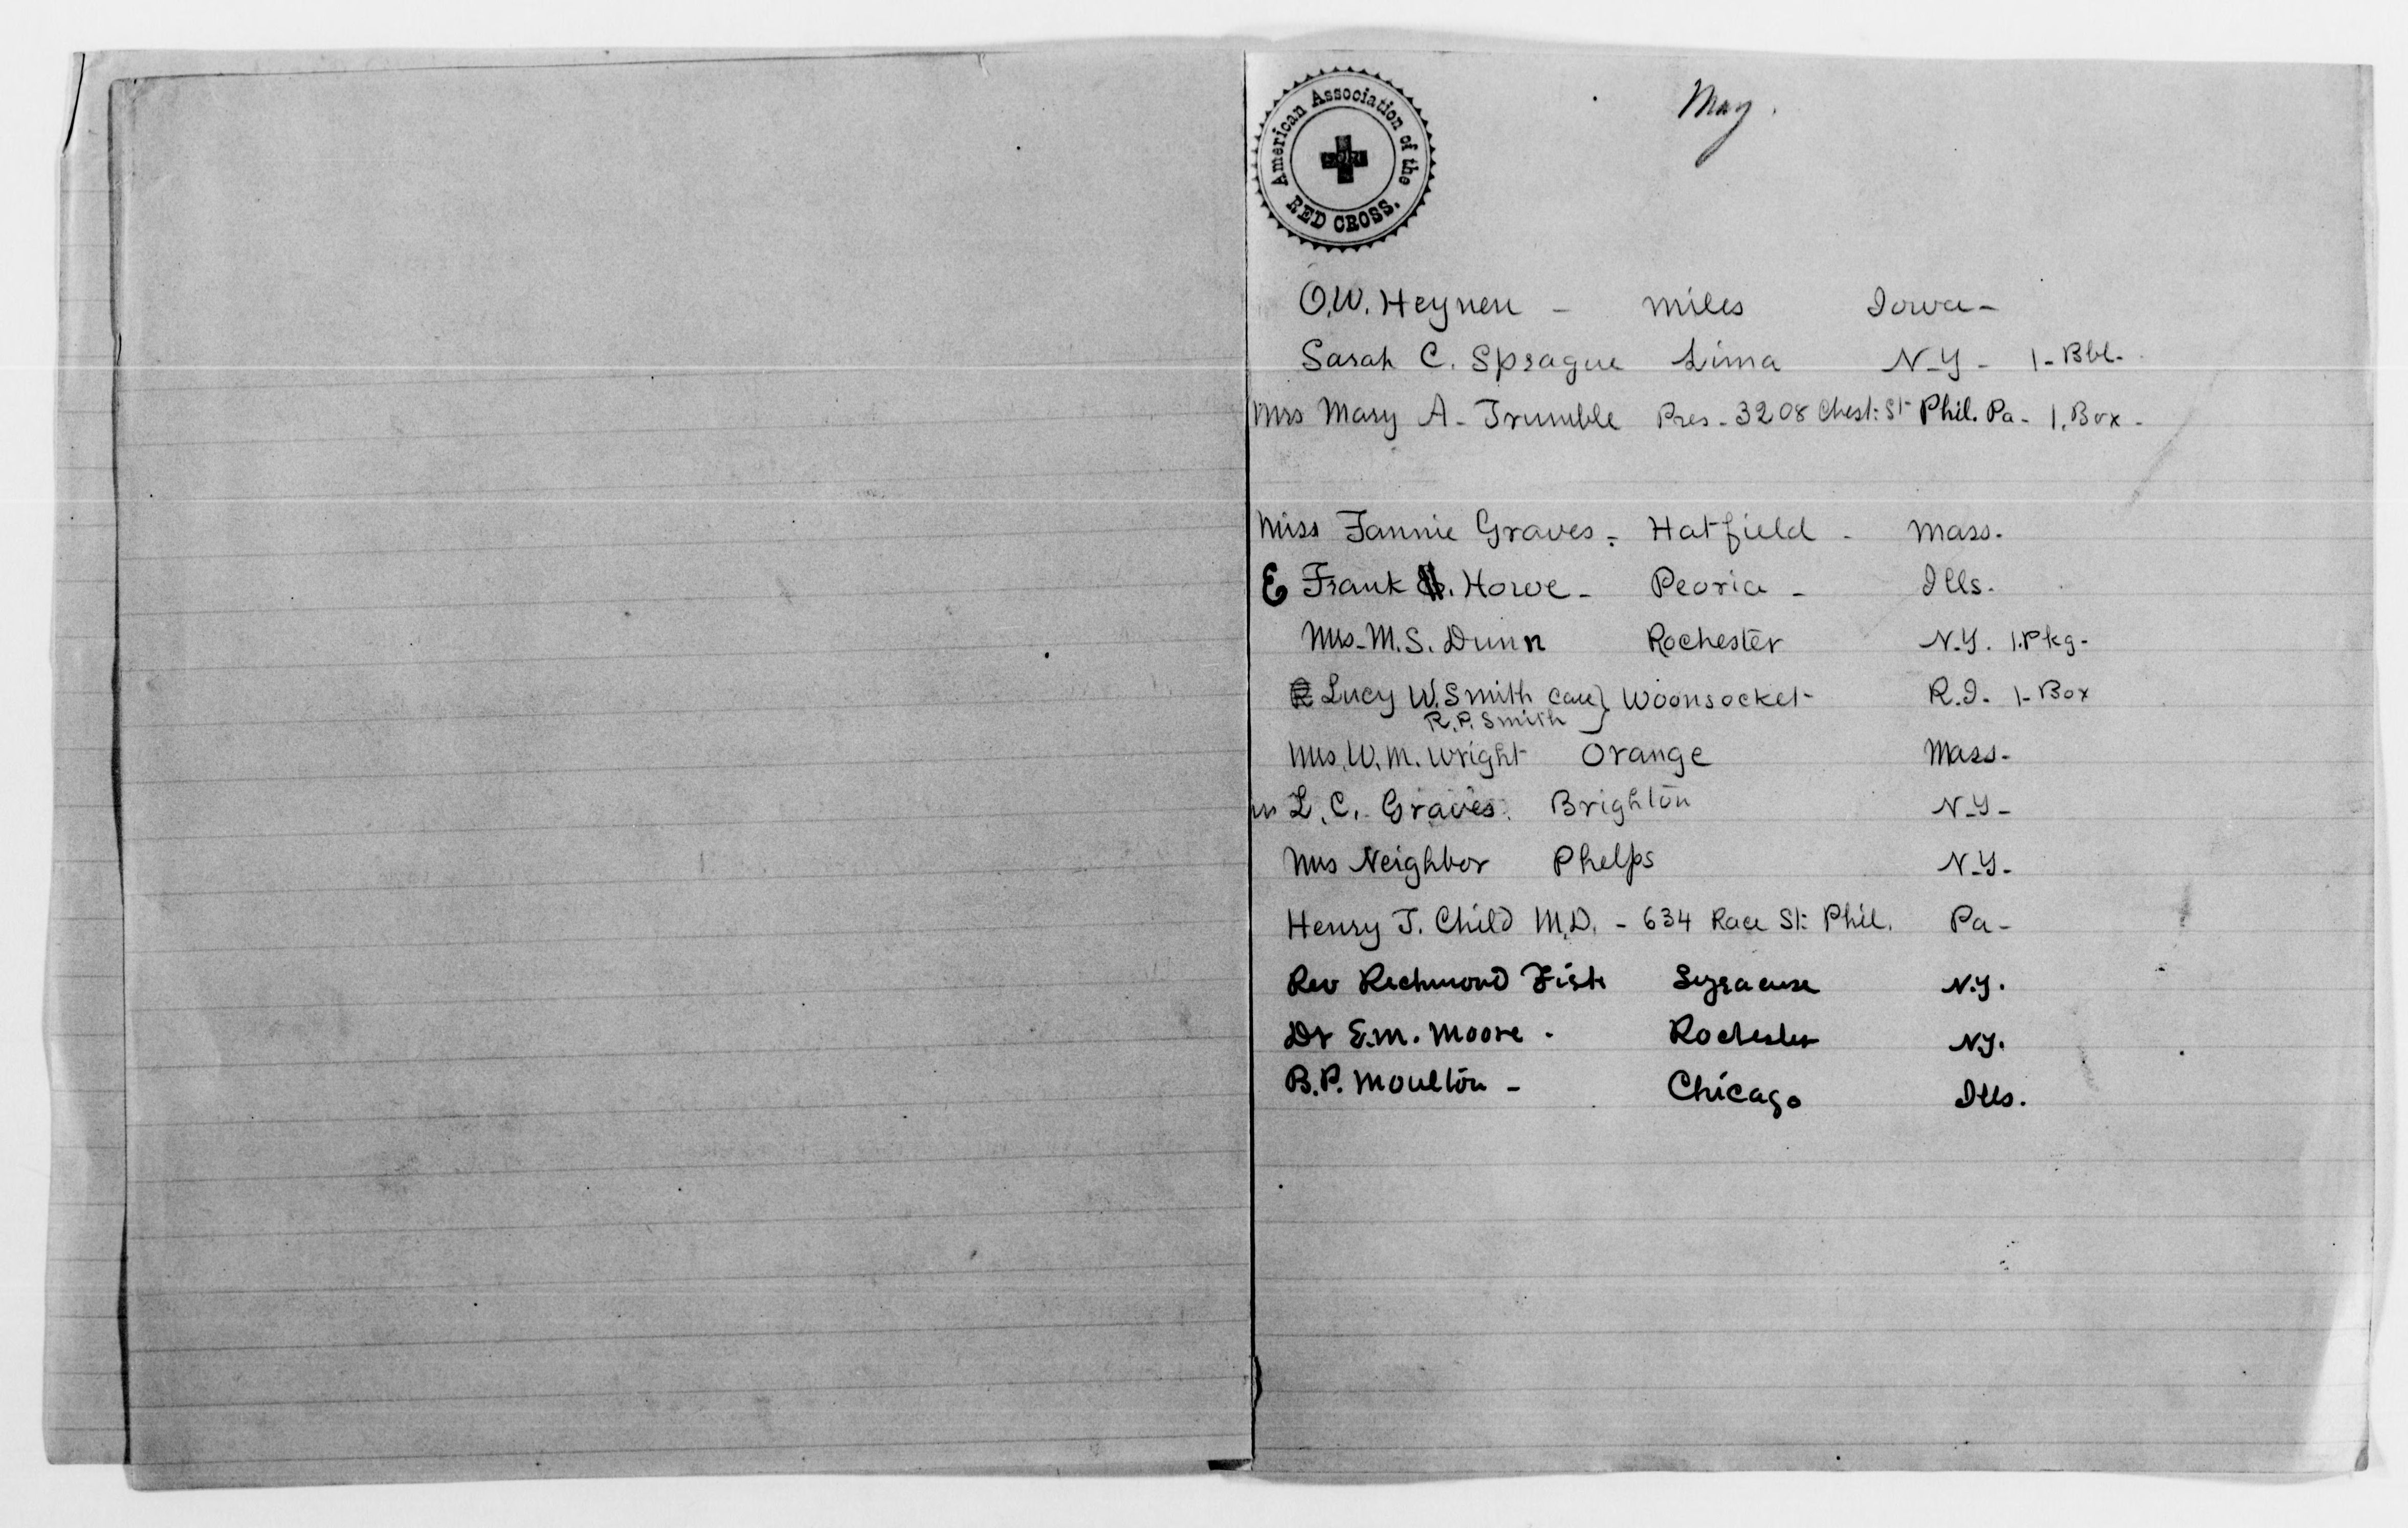 American Association of the
RED CROSS.
May.
O.W. Heynen - Miles Iowa -
Sarah C. Sprague Lima N-Y - 1-Bbl-
Mrs Mary A- Trumble Pres- 3208 Chest: St Phil. Pa- 1. Box -
Miss Fannie Graves - Hatfield - Mass.
E Frank H. Howe - Peoria - Ills.
Mrs- M.S. Dunn Rochester N.Y. 1.Pkg-
Lucy W. Smith care} Woonsocket R.I- 1-Box
R.P. Smith
Mrs. W.M. Wright Orange Mass-
L.C. Graves. Brighton N-Y-
Mrs Neighbor Phelps N-Y-
Henry T. Child M.D. - 634 Race St: Phil. Pa-
Rev Richmond Fisk Syracuse N.Y.
Dr E.M. Moore - Rochester N.Y.
B.P. Moulton - Chicago Ills.